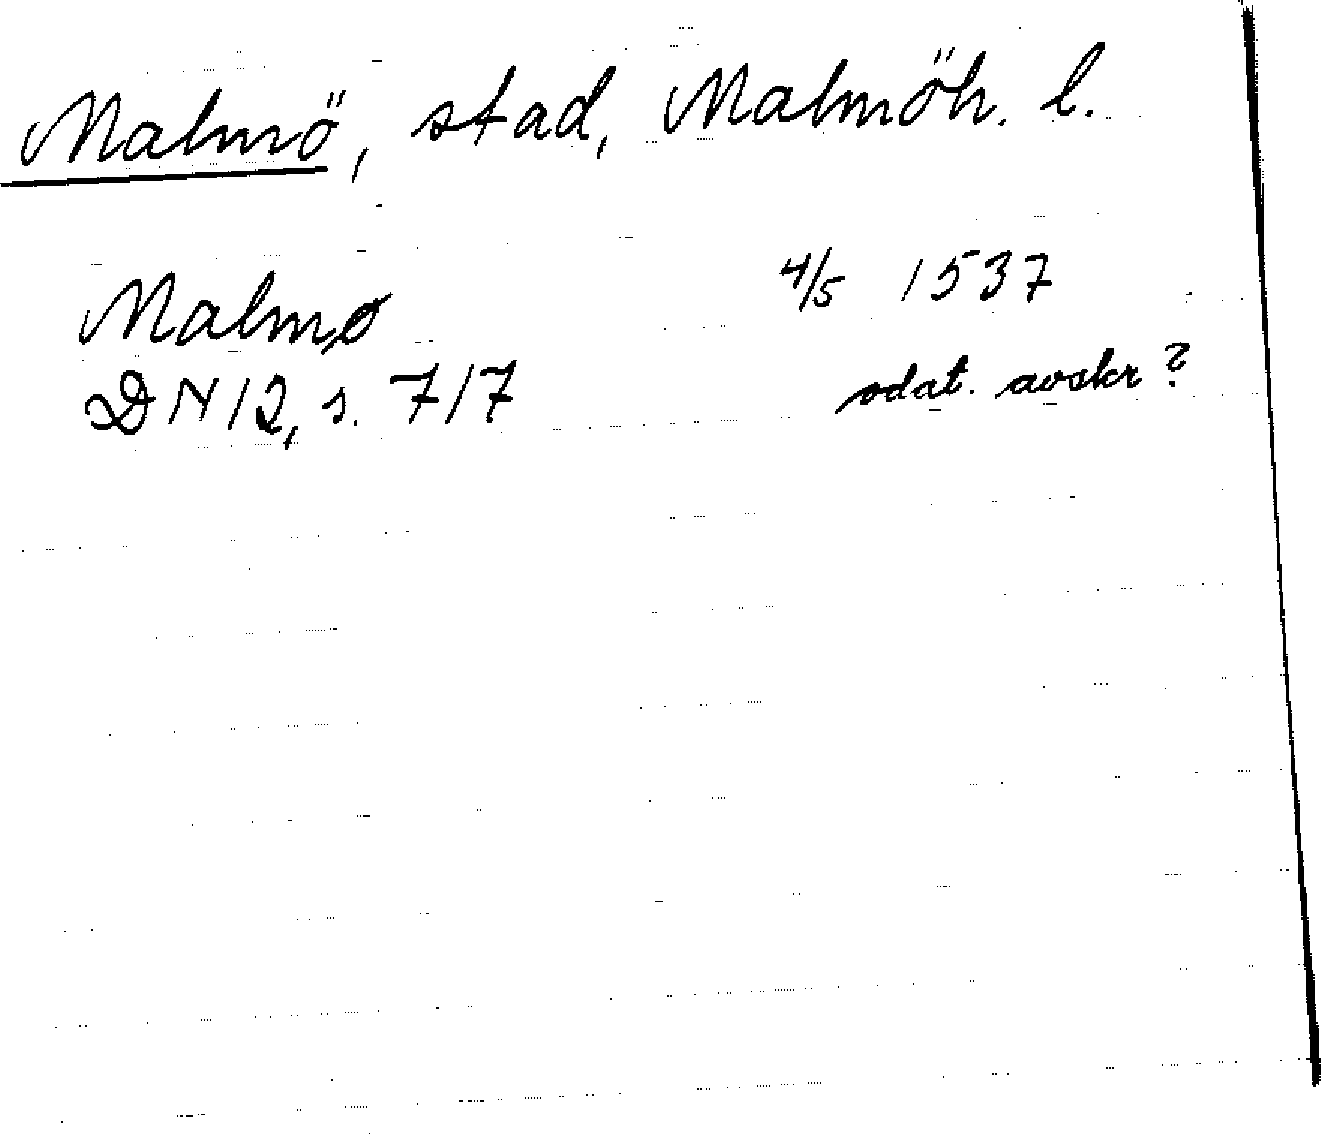 Malmö, stad, Malmöh. l.
Malmø 4/5 1537
DN 12, s. 717 odat. avskr?